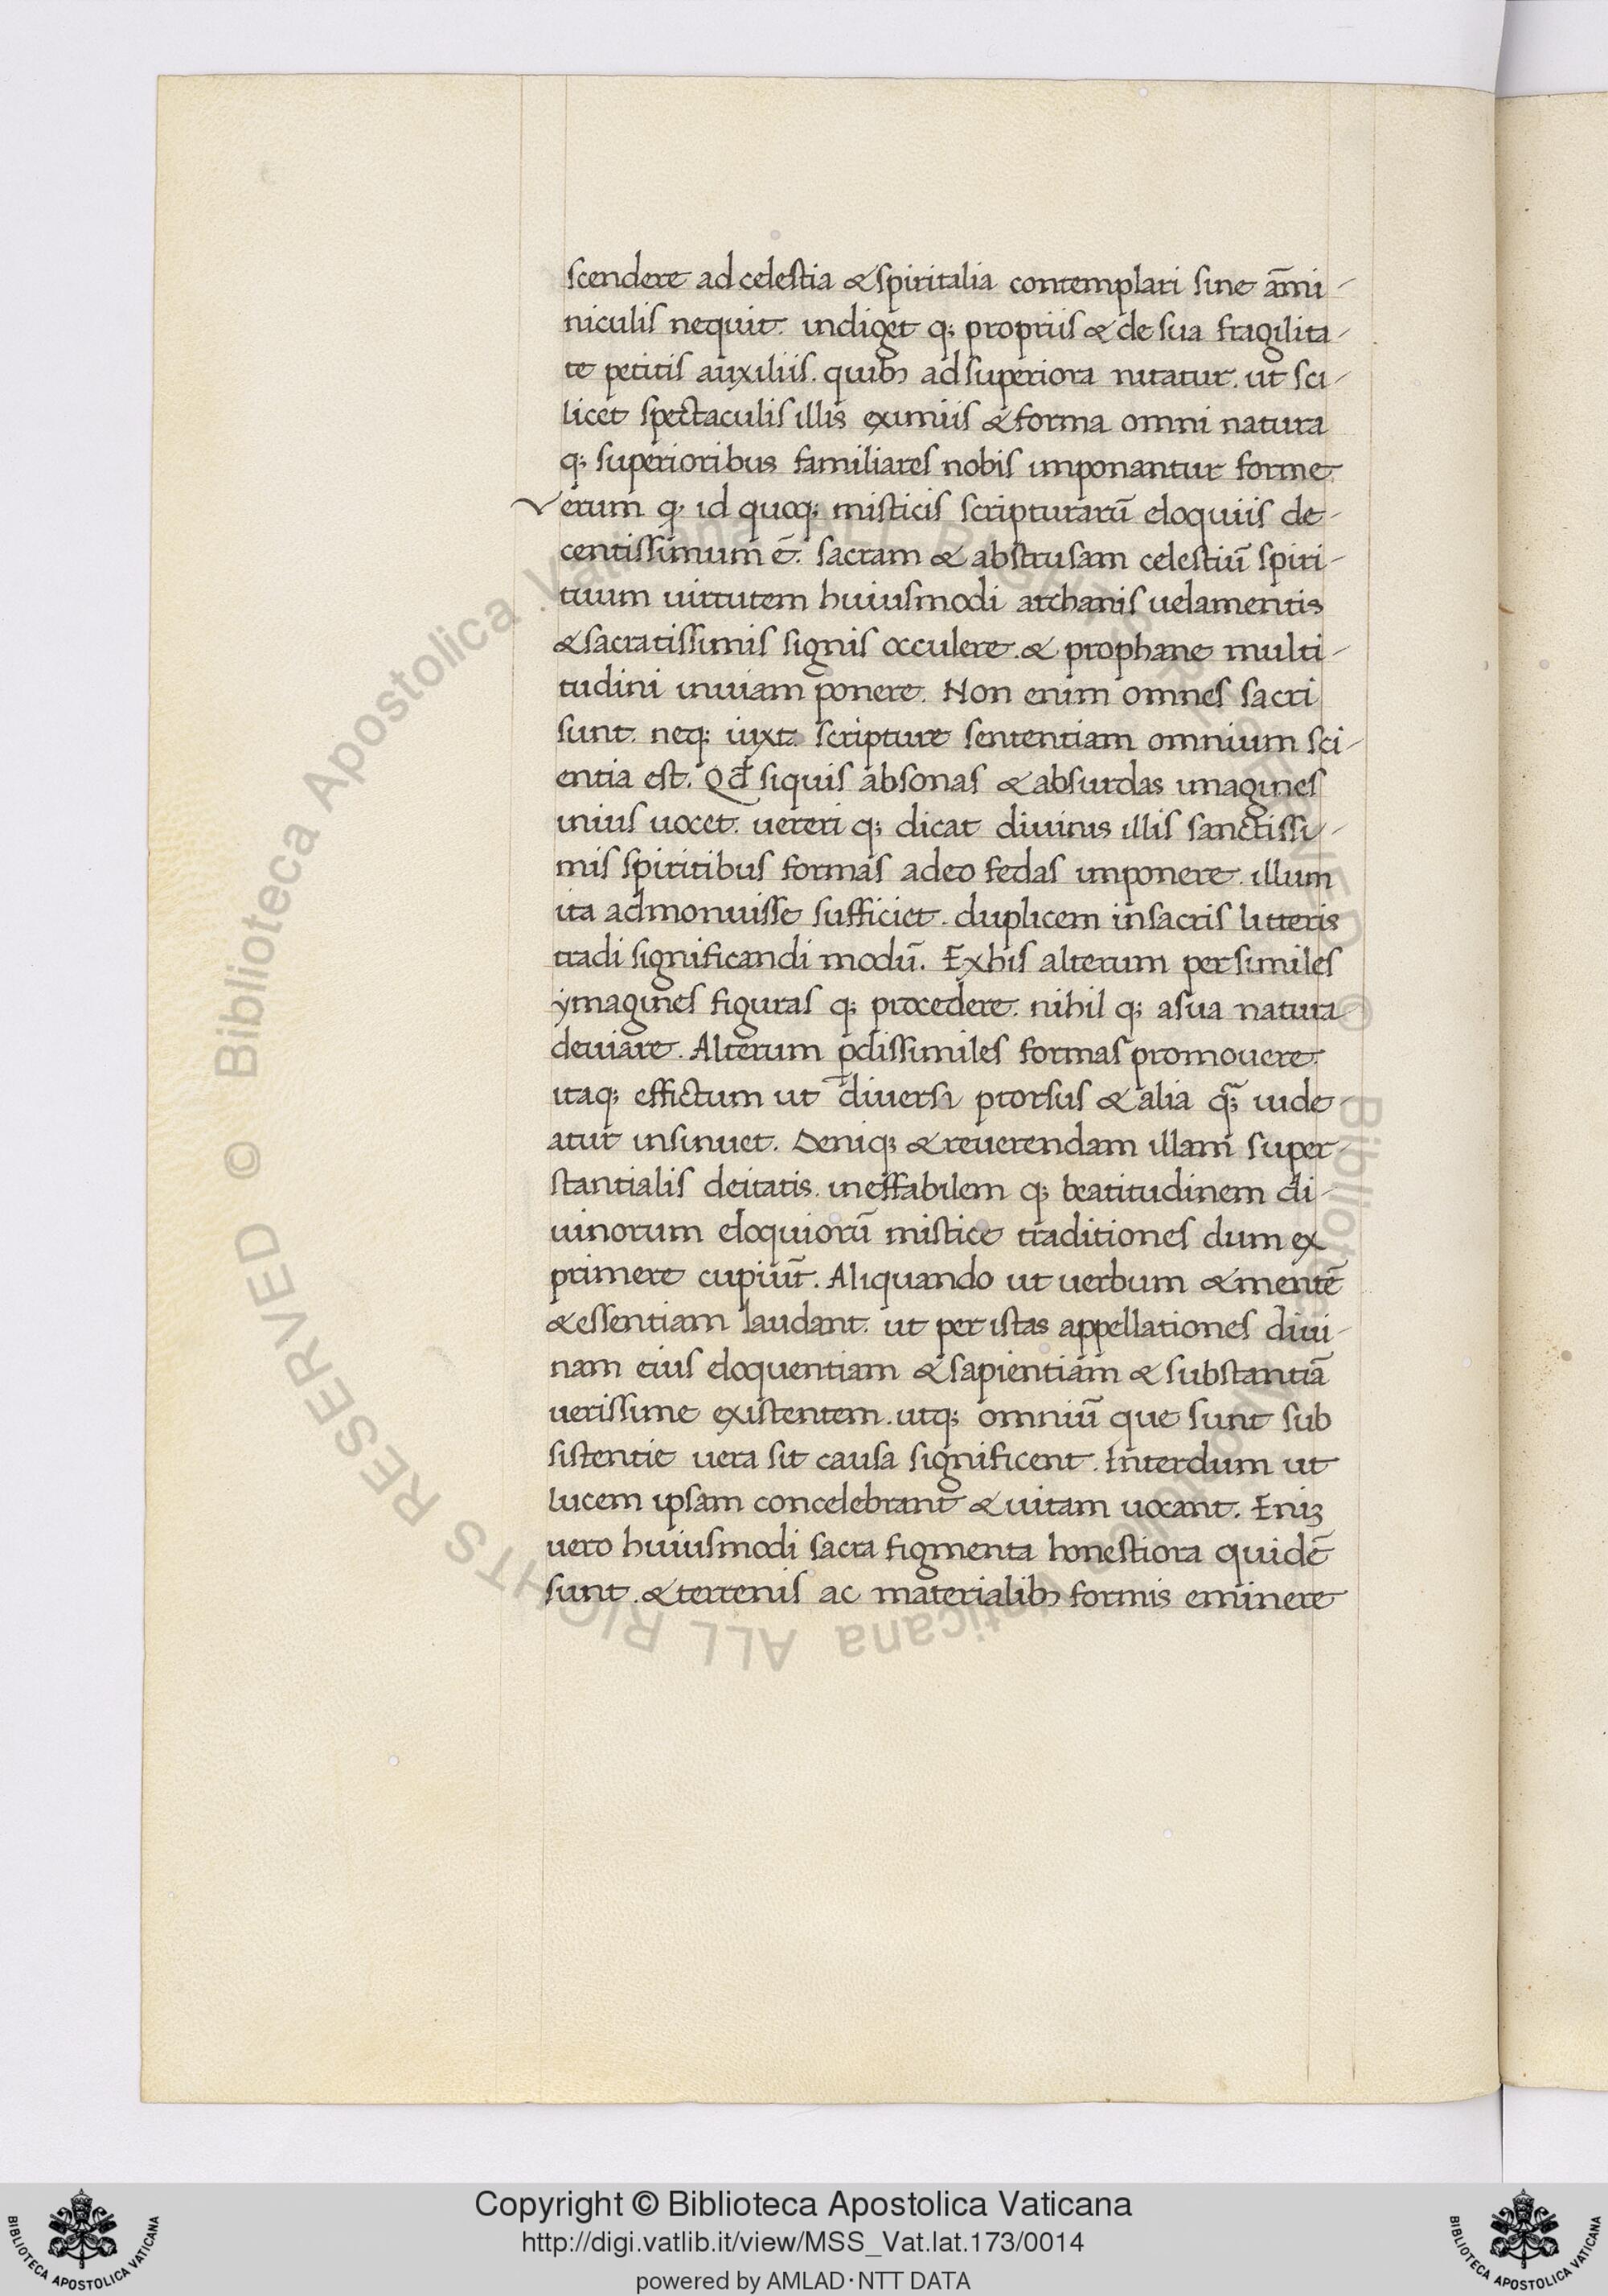 scendere ad celestia & spiritalia contemplari sine ām̄i-
niculis nequit. indiget q; propriis & de sua fragilita-
te petitis auxiliis. quib; ad superiora nitatur. ut sci-
licet spectaculis illis eximiis & forma omni natura
q; superioribus familiares nobis imponantur forme.
Verum q; id quoq; misticis scripturarū eloquiis de-
centissimum ē. sacram & abstrusam celestiū spiri-
tuum uirtutem huiusmodi archanis uelamentis
& sacratissimis signis occulere. & prophane multi-
tudini inuiam ponere. Non enim omnes sacri
sunt. neq; iuxt. scripture sententiam omnium sci-
entia est. Qd̄ siquis absonas & absurdas imagines
inius uocet. uereri q; dicat diuinis illis sanctissi-
mis spiritibus formas adeo fedas imponere. illum
ita admonuisse sufficiet. duplicem in sacris litteris
tradi significandi modū. Ex his alterum per similes
ymagines figuras q; procedere. nihil q; a sua natura
deuiare. Alterum p̱ dissimiles formas promouere.
itaq; effictum ut diuersū prorsus & alia q̄; uide-
atur insinuet. Deniq; & reuerendam illam super-
stantialis deitatis. ineffabilem q; beatitudinem di-
uinorum eloquiorū mistice traditiones dum ex
primere cupiūt. Aliquando ut uerbum & mentē
& essentiam laudant. ut per istas appellationes diui-
nam eius eloquentiam & sapientiam & substantiā
uerissime existentem. utq; omniū que sunt sub
sistentie uera sit causa significent. Interdum ut
lucem ipsam concelebrant & uitam uocant. Eniʒ
uero huiusmodi sacra figmenta honestiora quidē
sunt. & terrenis ac materialib; formis eminere
© Biblioteca Apostolica Vaticana ALL RIGHTS RESERVED
Copyright © Biblioteca Apostolica Vaticana
http://digi.vatlib.it/view/MSS_Vat.lat.173/0014
powered by AMLAD·NTT DATA
BIBLIOTECA APOSTOLICA VATICANA
BIBLIOTECA APOSTOLICA VATICANA